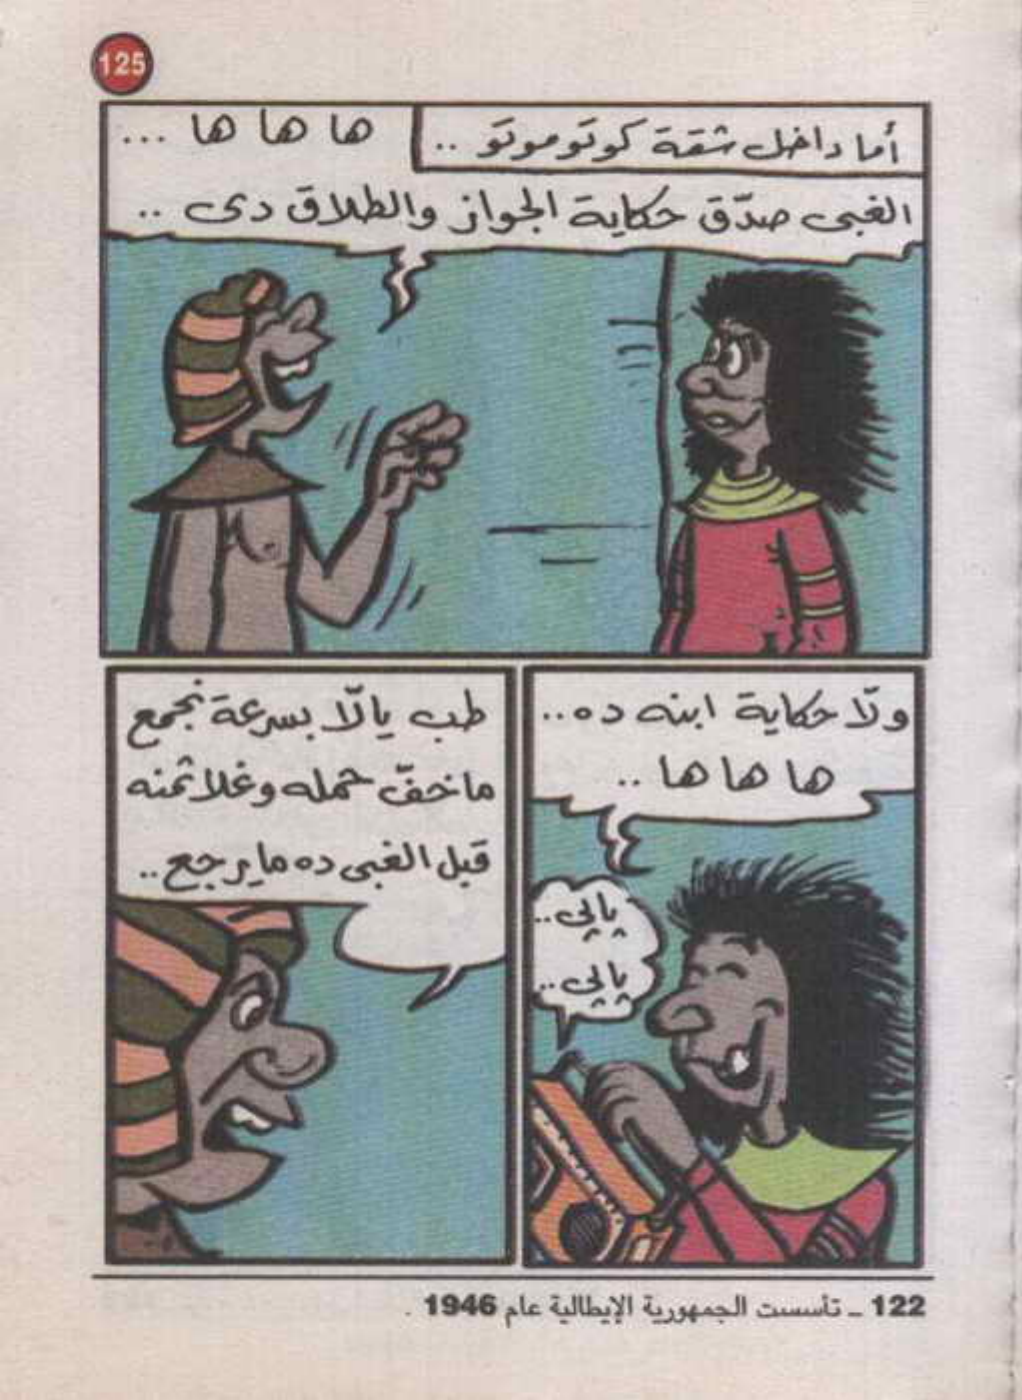 125
أما داخل شقة كوتوموتو ..
ها ها ها ...
الغبى صدّق حكاية الجواز والطلاق دى ..
ولّا حكاية ابنه ده ..
ها ها ها ..
يالى ..
يالى ..
طب يالّا بسرعة نجمع
ماخفّ حمله وغلا ثمنه
قبل الغبى ده مايرجع ..
122 ــ تأسست الجمهورية الإيطالية عام 1946 .